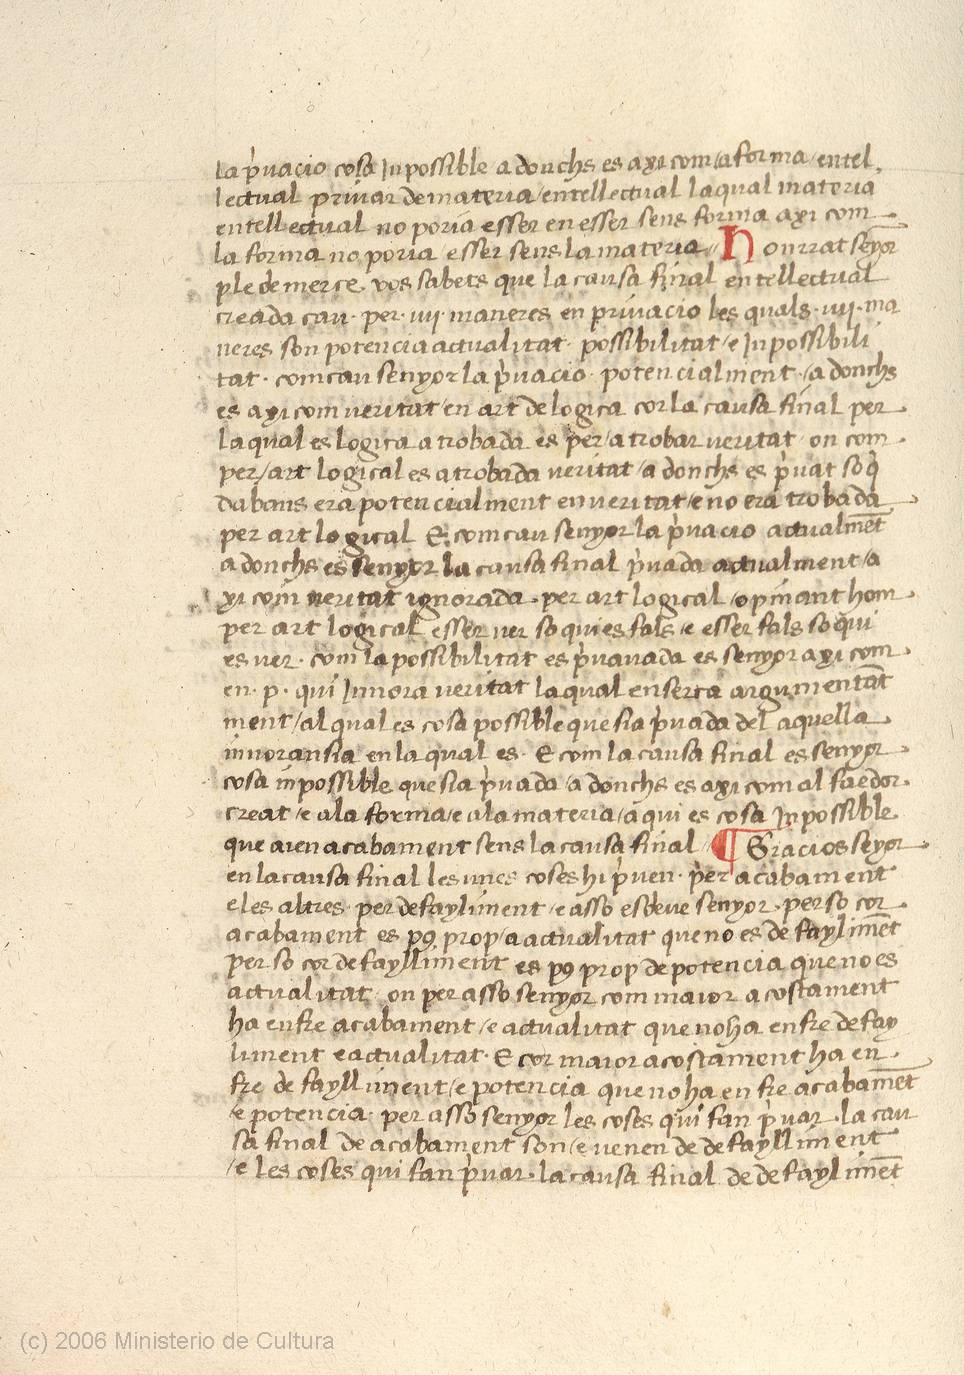 la p̓uacio cosa Inpossible adonchs es axi com la forma entel
lectual priuar de materia entellectual la qual materia
entellectual no poria esser en esser sens forma axi com
la forma no poria esser sens la materia Honrrat seyor
ple de merce. vos sabets que la causa final entellectual
creada cau. per .iiij. maneres en priuacio les quals .iiij. ma
neres son potencia actualitat. possibilitat e Inpossibili
tat. com cau senyor la p̓uacio. potencialment. adonchs
es axi com ueritat en art de logica cor la causa final per
la qual es logica atrobada es per atrobar ueritat on com
per art logical es atrobada veritat adonchs es p̓uat so q̓
dabans era potencialment en ueritat e no era trobada
per art logical E com cau senyor la p̓uacio actualmēt
adonchs es senyor la causa final p̓uada actualment a
xi com ueritat ignorada. per art logical opinant hom
per art logical esser uer so qui es fals e esser fals so qui
es uer. com la possibilitat es p̓uauada es senyor axi com
en .p. qui Innora ueritat la qual en serca argumentāt
ment al qual es cosa possible que sia p̓uada del aquella
innoransia en la qual es. E com la causa final es senyor
cosa inpossible que sia p̓uada adonchs es axi com al faedor
creat e a la forma e a la materia a qui es cosa Inpossible
que aien acabament sens la causa final ¶ Gracios seyor
en la causa final les unes coses hi p̓uen. per acabament
e les altres. per defayliment. e asso esdeue senyor. per so cor
acabament es p9 prop a actualitat que no es de faylimēt
per so cor defaylliment es p9 prop de potencia que no es
actualitat on per asso senyor com maior acostament
ha enfre acabament e actualitat que no ha enfre defay
liment e actualitat. E cor maior acostament ha en
fre defaylliment e potencia que no ha enfre acabamēt
e potencia. per asso senyor les coses qui fan p̓uar. la cau
sa final de acabament son e uenen de defaylliment
e les coses qui fan p̓uar. la causa final de defaylimēt
(c) 2006 Ministerio de Cultura